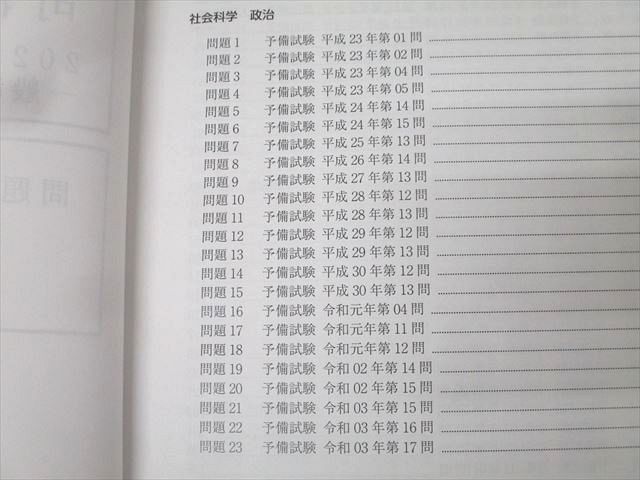 社会科学 政治
問題 1 予備試験 平成 23 年第 01 問
問題 2 予備試験 平成 23 年第 02 問
問題 3 予備試験 平成 23 年第 04 問
問題 4 予備試験 平成 23 年第 05 問
問題 5 予備試験 平成 24 年第 14 問
問題 6 予備試験 平成 24 年第 15 問
問題 7 予備試験 平成 25 年第 13 問
問題 8 予備試験 平成 26 年第 14 問
問題 9 予備試験 平成 27 年第 13 問
問題 10 予備試験 平成 28 年第 12 問
問題 11 予備試験 平成 28 年第 13 問
問題 12 予備試験 平成 29 年第 12 問
問題 13 予備試験 平成 29 年第 13 問
問題 14 予備試験 平成 30 年第 12 問
問題 15 予備試験 平成 30 年第 13 問
問題 16 予備試験 令和元年第 04 問
問題 17 予備試験 令和元年第 11 問
問題 18 予備試験 令和元年第 12 問
問題 19 予備試験 令和 02 年第 14 問
問題 20 予備試験 令和 02 年第 15 問
問題 21 予備試験 令和 03 年第 15 問
問題 22 予備試験 令和 03 年第 16 問
問題 23 予備試験 令和 03 年第 17 問